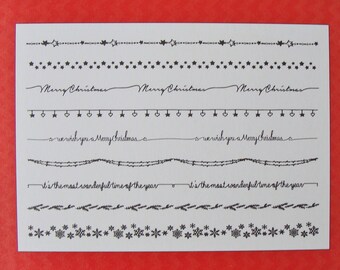 Merry Christmas Merry Christmas Merry Christmas
we wish you a Merry Christmas we wish you a Merry Christmas
it's the most wonderful time of the year it's the most wonderful time of the year